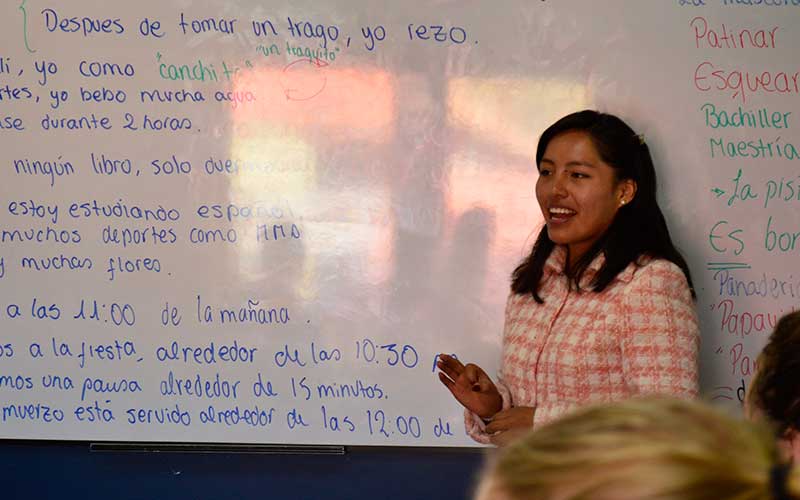 Despues de tomar un trago, yo rezo.
"un traguito"
yo como "canchita"
yo bebo mucha agua
durante 2 horas.
ningún libro, solo
estoy estudiando español,
muchos deportes como MMA
y muchas flores.
a las 11:00 de la mañana.
a la fiesta, alrededor de las 10:30
una pausa alrededor de 15 minutos.
está servido alrededor de las 12:00 d
Patinar
Esquear
Bachiller
Maestría
La
Es